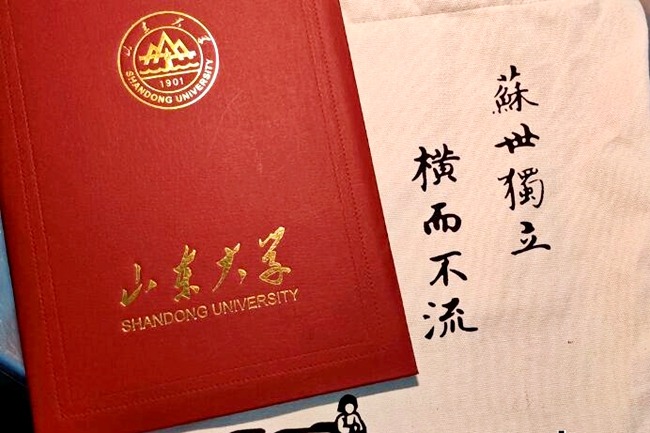 山东大学
SHANDONG UNIVERSITY
1901
山东大学
SHANDONG UNIVERSITY
蘇世獨立
橫而不流